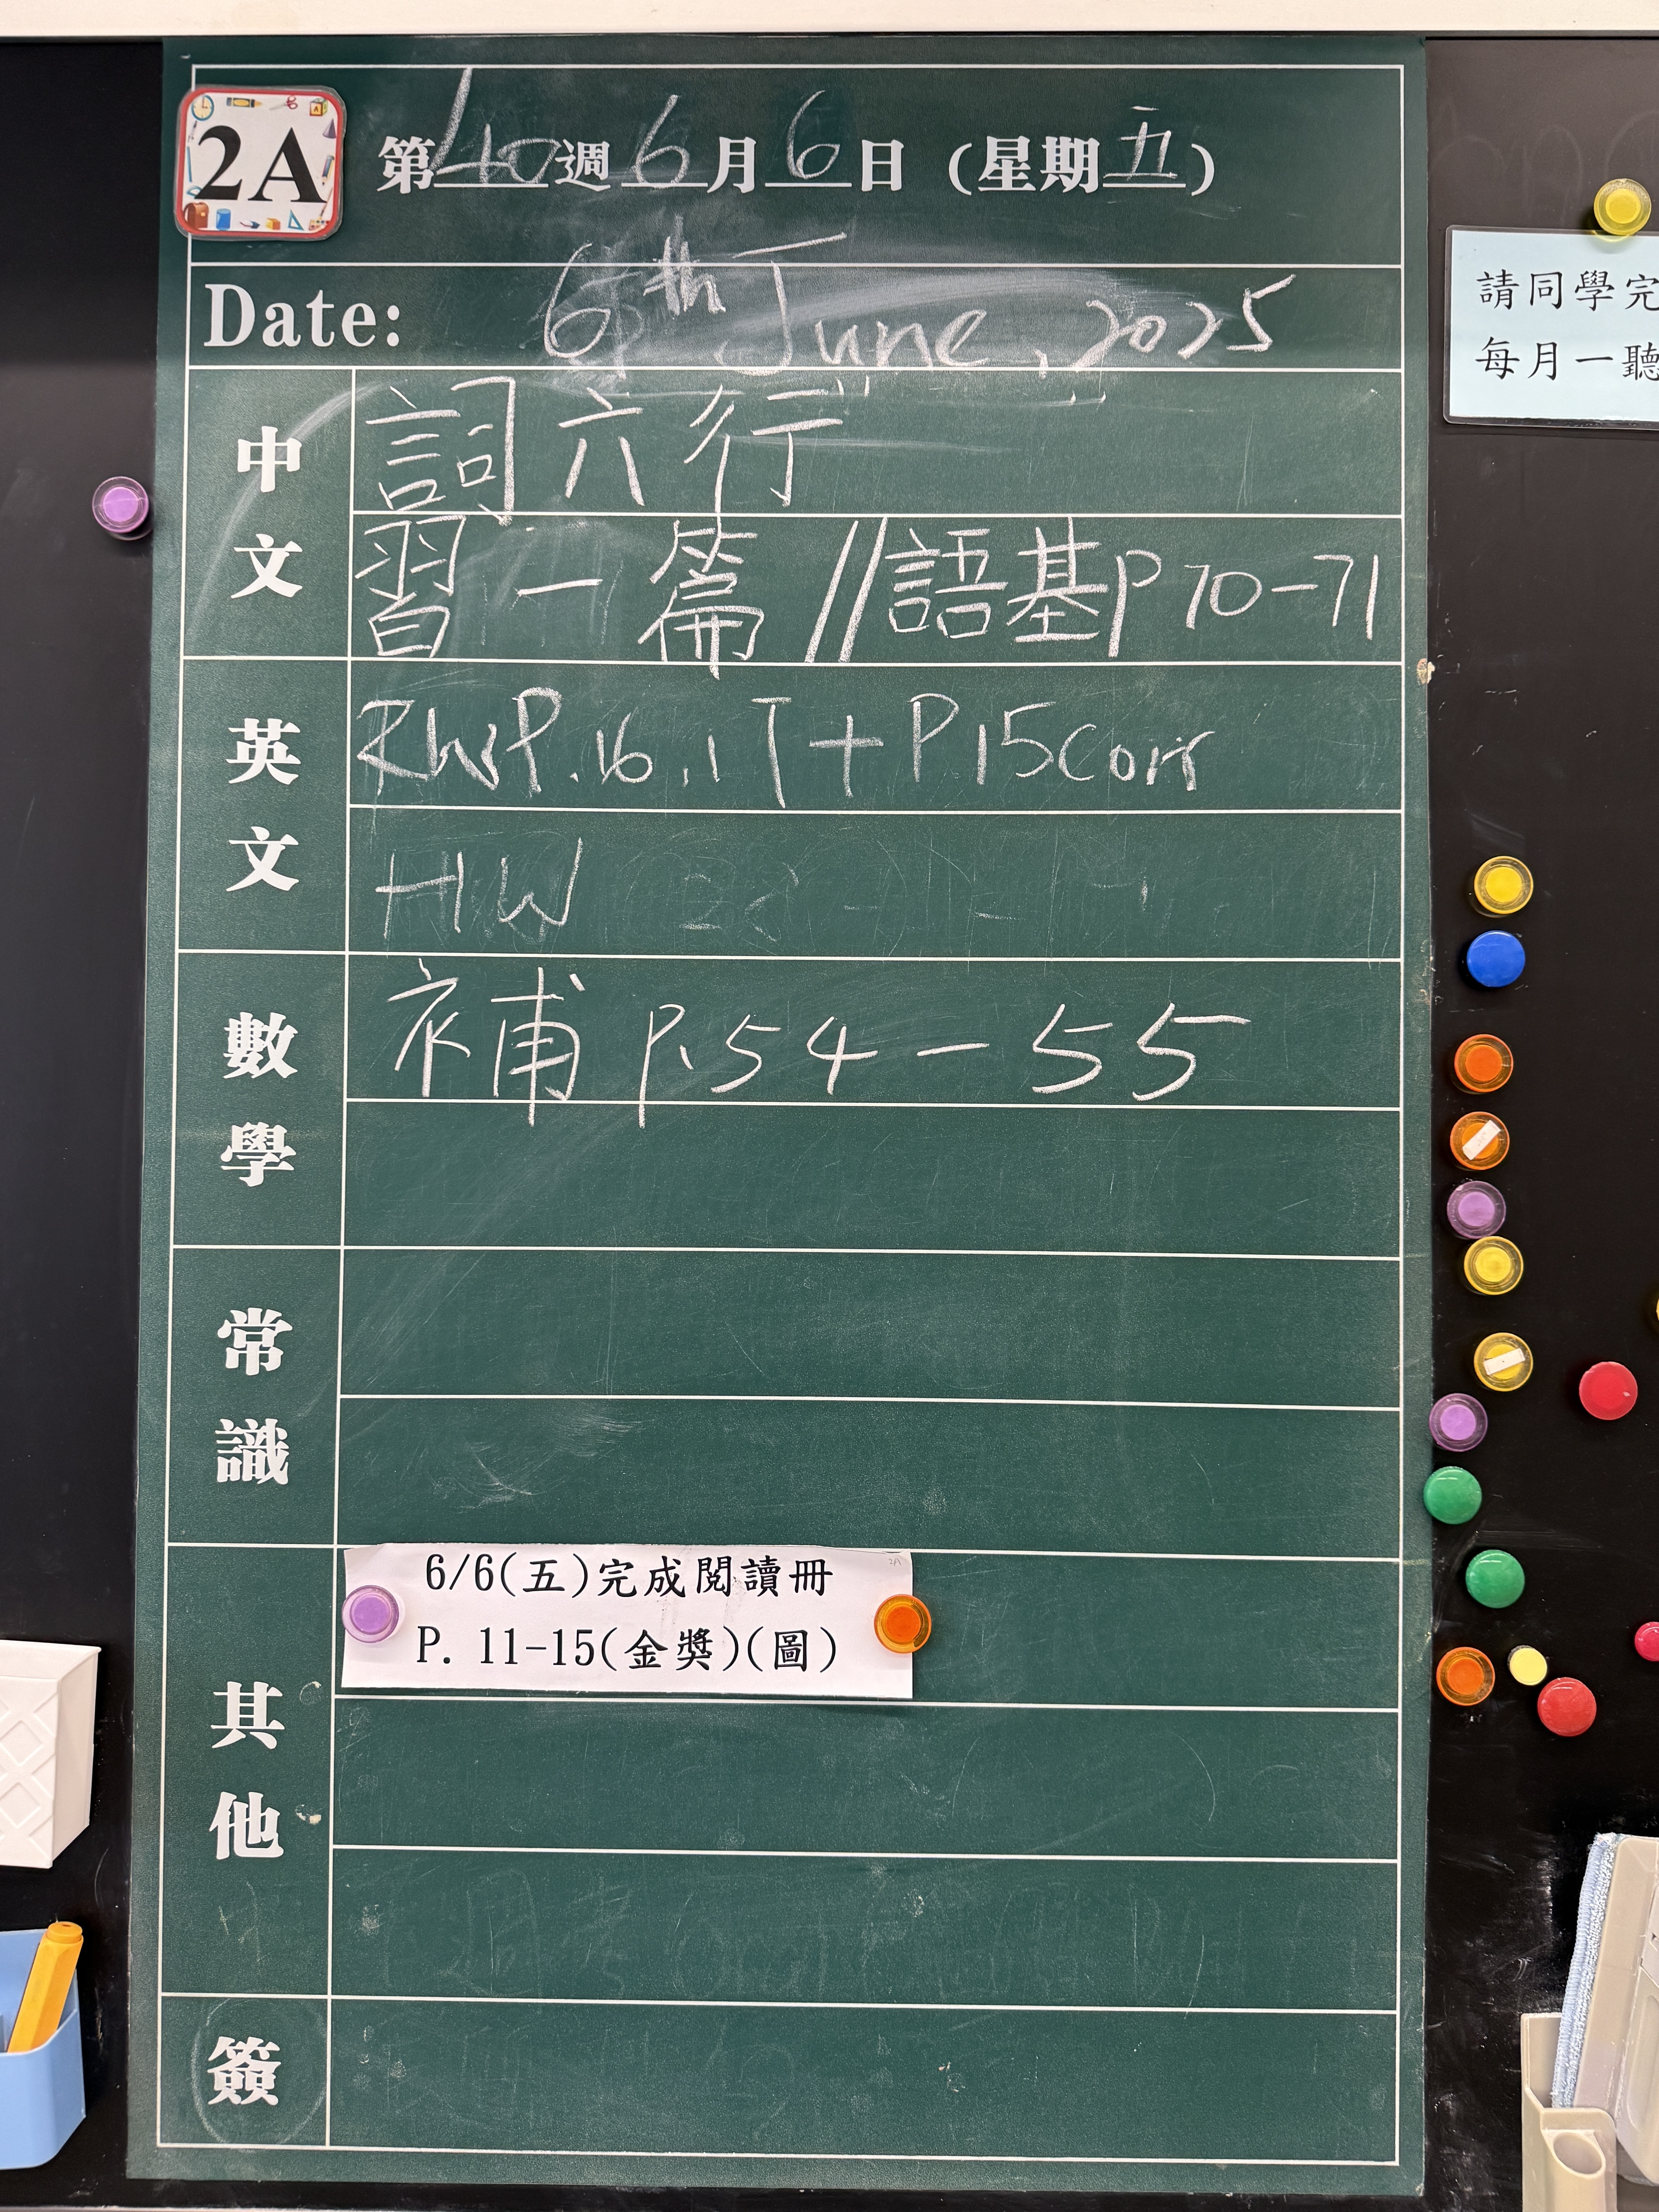 2A
第40週6月6日(星期五)
Date: 6th June, 2025
中文
詞六行
習一篇//語基P70-71
英文
RWSP.16,17+P.15Corr
HW
數學
補P.54-55
常識
其他
6/6(五)完成閱讀冊
P. 11-15(金獎)(圖)
簽
請同學完
每月一聽